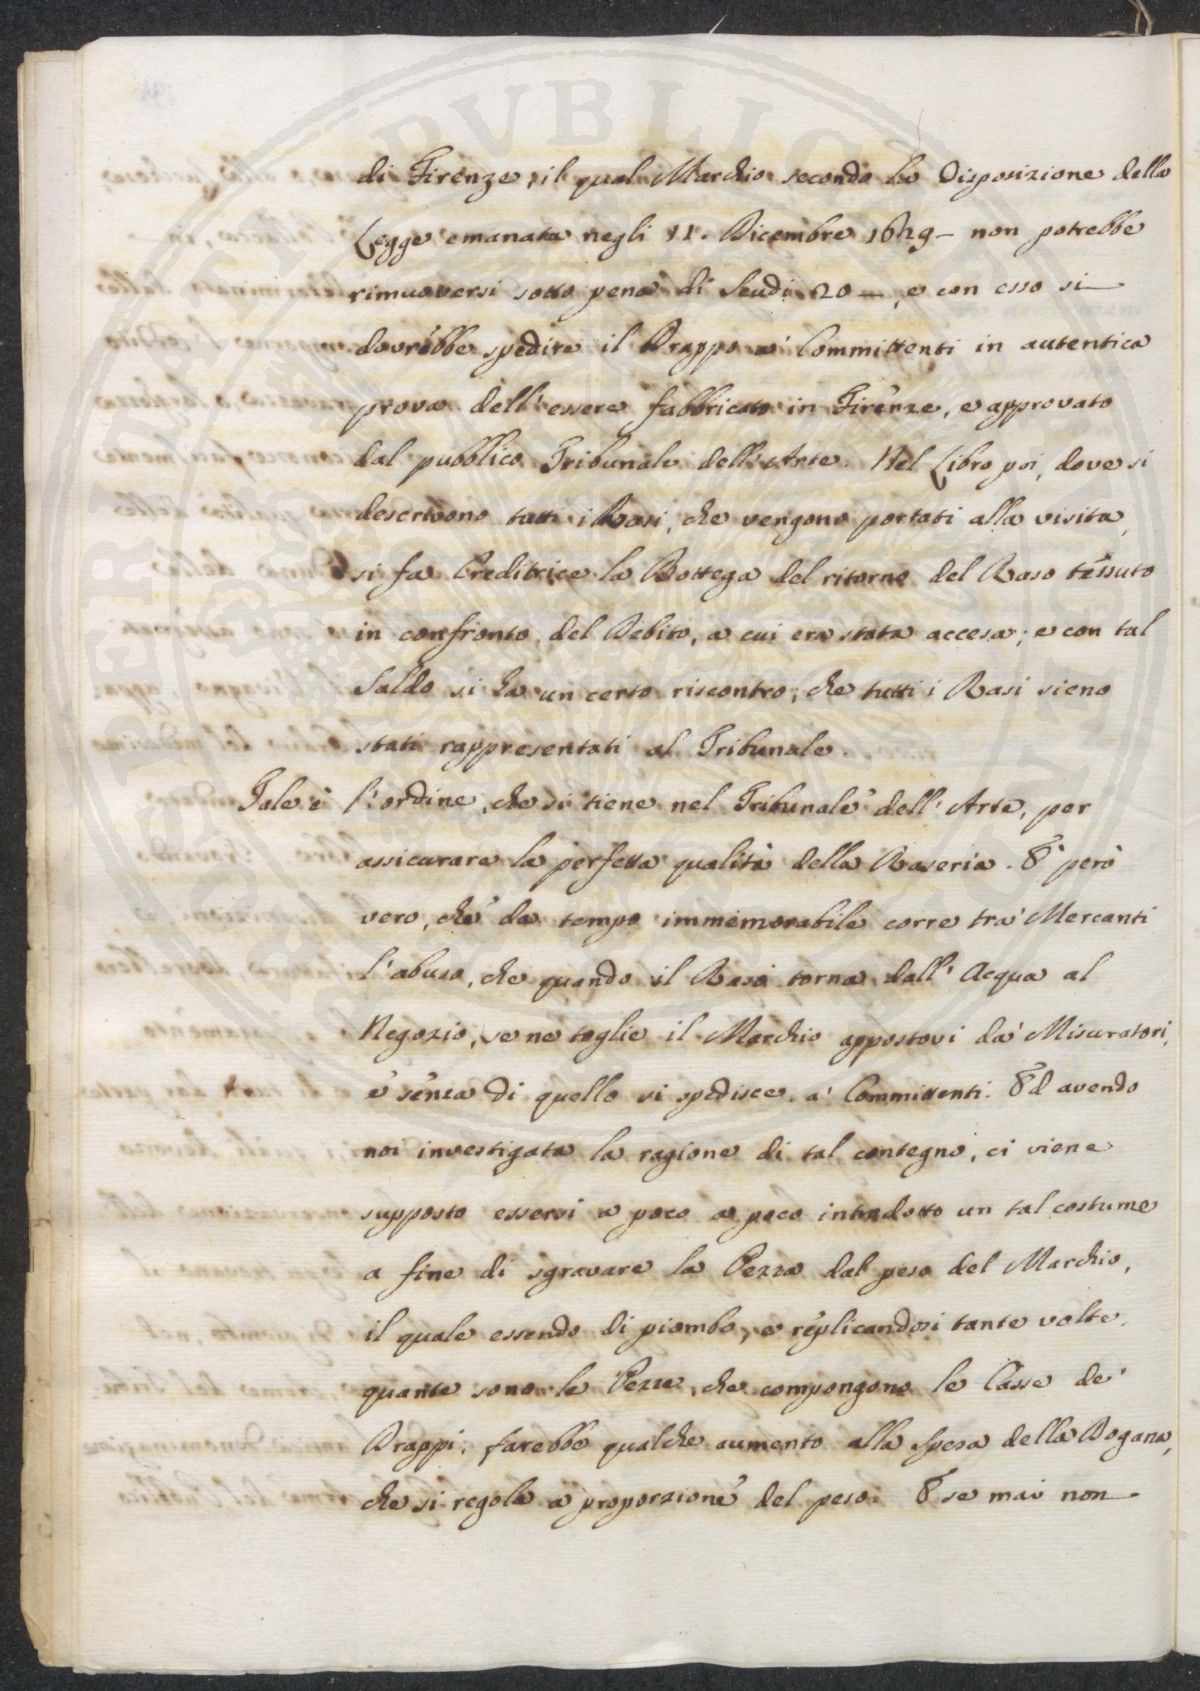 di Firenze, il qual Marchio secondo la Disposizione della
Legge emanata negli 11. Dicembre 1629 – non potrebbe
rimuoversi sotto pena di Scudi 20 –, e con esso si –
dovrebbe spedire il Drappo a' Committenti in autentica
prova dell'essere fabbricato in Firenze, e approvato
dal pubblico Tribunale dell'Arte. Nel Libro poi, dove si
descrivono tutti i Rasi, che vengono portati alla visita,
si fa Creditrice la Bottega del ritorno del Raso tessuto
in confronto del Debito, a cui era stata accesa; e con tal
Saldo si ha un certo riscontro, che tutti i Rasi sieno
stati rappresentati al Tribunale.
Tale è l'ordine, che si tiene nel Tribunale dell'Arte, per
assicurare la perfetta qualità della Raseria. È però
vero, che da tempo immemorabile corre tra' Mercanti
l'abuso, che quando il Raso torna dall'Acqua al
Negozio, se ne toglie il Marchio appostovi da' Misuratori,
e senza di quello si spedisce a' Committenti. Ed avendo
noi investigata la ragione di tal contegno, ci viene
supposto essersi a poco a poco introdotto un tal costume
a fine di sgravare la Pezza dal peso del Marchio,
il quale essendo di piombo, e replicandosi tante volte,
quante sono le Pezze, che compongono le Casse de'
Drappi, farebbe qualche aumento alla spesa della Dogana,
che si regola a proporzione del peso. E se mai non –
PUBLIC